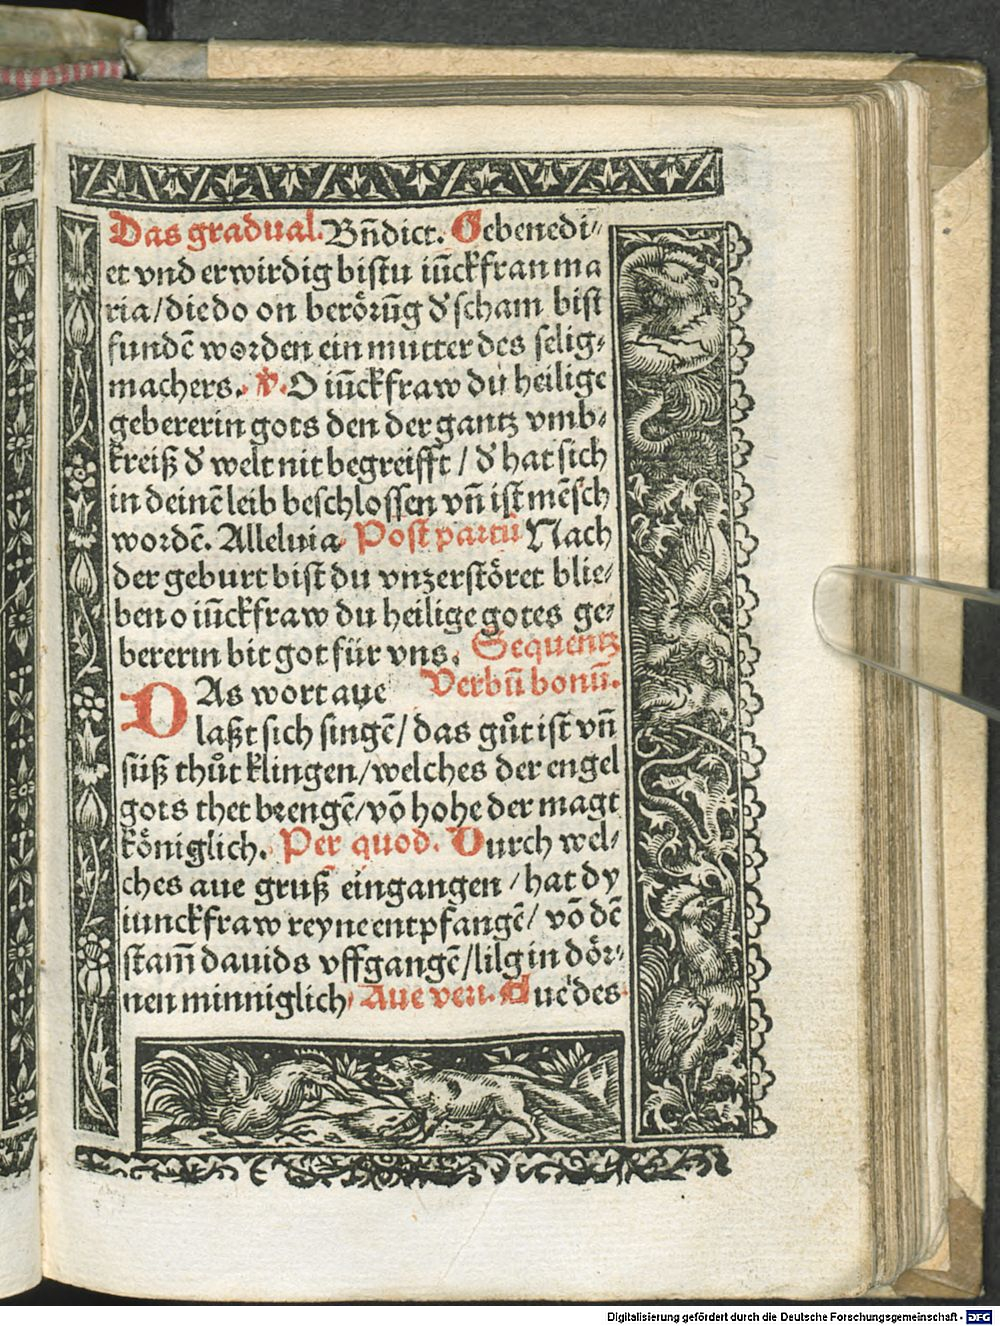 Das gradual. Bñdict. Gebenedi⸗
et vnd erwirdig bistu iūckfrau ma
ria/die do on berörūg d̕ scham bist
fundē worden ein mutter des selig⸗
machers. ℣. O iūckfraw du heilige
gebererin gots den der gantz vmb⸗
kreiß d̕ welt nit begreifft / d̕ hat sich
in deinē leib beschlossen vñ ist mēsch
wordē. Alleluia Post partū Nach
der geburt bist du vnzerstöret blie⸗
ben o iūckfraw du heilige gotes ge⸗
bererin bit got für vns. Sequentz
DAs wort aue Verbū bonū.
laßt sich singē/ das gůt ist vñ
süß thůt klingen/welches der engel
gots thet brengē/vō hohe der magt
königlich. Per quod. Durch wel⸗
ches aue gruß eingangen / hat dy
iunckfraw reyne entpfangē/ vō dē
stam̄ dauids vffgangē/lilg in dör⸗
nen minniglich Aue veri. Aue des
Digitalisierung gefördert durch die Deutsche Forschungsgemeinschaft - DFG